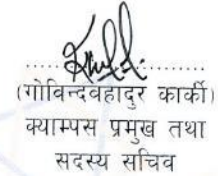 (गोविन्दबहादुर कार्की)
क्याम्पस प्रमुख तथा
सदस्य सचिव